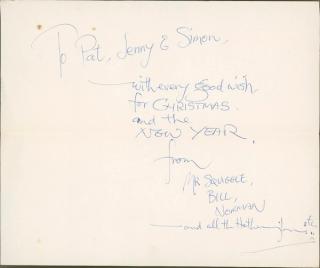 To Pat, Jenny & Simon,
with every good wish
for CHRISTMAS
and the
NEW YEAR,
from
MR SQUIGGLE,
BILL,
NORMAN
and all the
etc